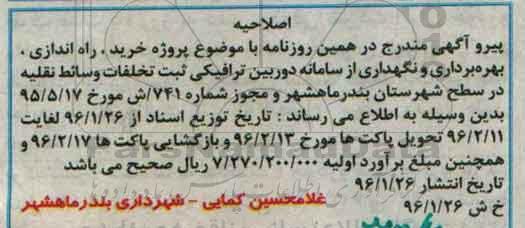 اصلاحیه
پیرو آگهی مندرج در همین روزنامه با موضوع پروژه خرید ، راه اندازی ،
بهره‌برداری و نگهداری از سامانه دوربین ترافیکی ثبت تخلفات وسائط نقلیه
در سطح شهرستان بندرماهشهر و مجوز شماره ۷۴۱/ش مورخ ۹۵/۵/۱۷
بدین وسیله به اطلاع می رساند : تاریخ توزیع اسناد از ۹۶/۱/۲۶ لغایت
۹۶/۲/۱۱ تحویل پاکت ها مورخ ۹۶/۲/۱۳ و بازگشایی پاکت ها ۹۶/۲/۱۷ و
همچنین مبلغ برآورد اولیه ۷/۲۷۰/۲۰۰/۰۰۰ ریال صحیح می باشد
تاریخ انتشار ۹۶/۱/۲۶
خ ش ۹۶/۱/۲۶
غلامحسین کمایی - شهرداری بندرماهشهر